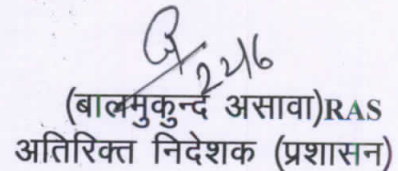 (बालमुकुन्द असावा)RAS
अतिरिक्त निदेशक (प्रशासन)